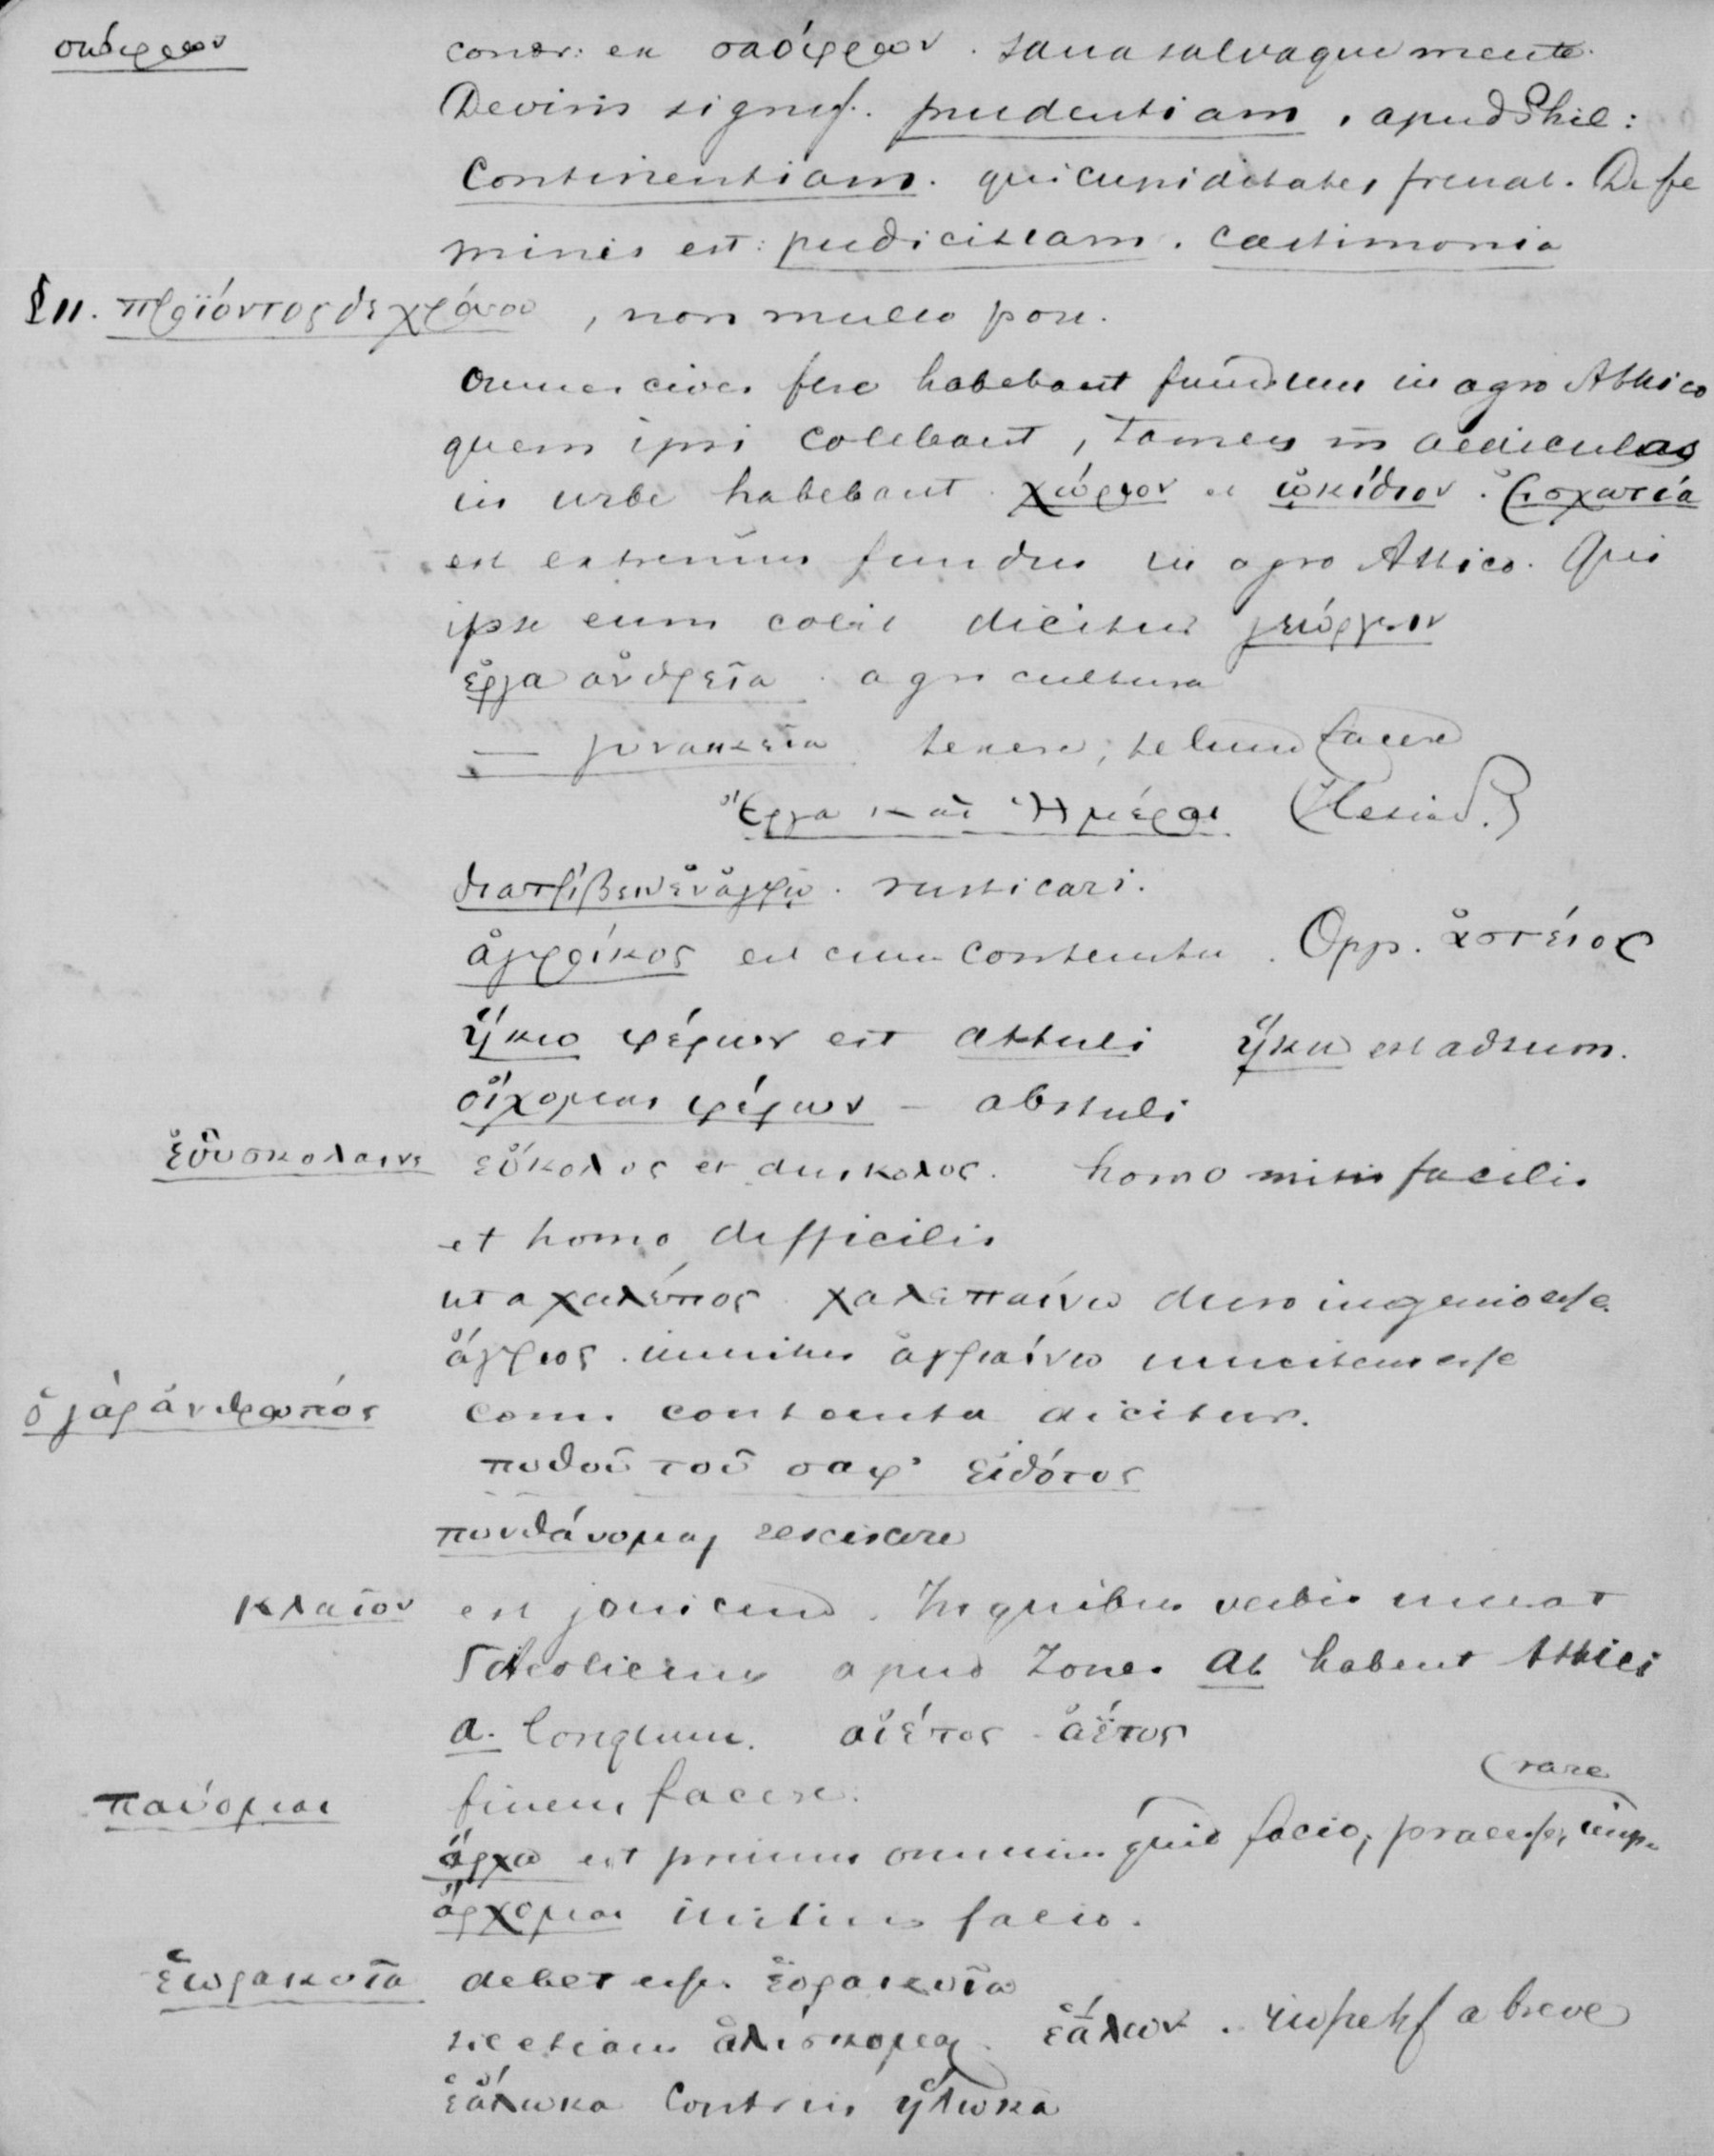 σώφρων contr: ex σαόφρων. sana salvaque mente.
De viris signif. prudentiam, apud Phil:
Continentiam. qui cupiditates frenat. De fe
minis est: pudicitiam. castimonia
§11. προϊόντος δε χρόνου, non multo post.
omnes cives fere habebant fundum in agro Attico
quem ipsi colebant, tamen aediculas
in urbe habebant. χώριον et οἰκίδιον. Ἐσχατία
est extremus fundus in agro Attico. Qui
ipse eum colit dicitur
ἔργα ἀνδρεῖα. agri cultura
— γυναικεῖα texere, telam facere
Ἔργα καὶ Ἡμέραι (Hesiod.)
διατρίβειν ἐν ἀγρῷ. rusticari.
ἀγροίκος est cum contemtu. Opp. ἀστέιος
ἥκω φέρων est attuli ἥκω est adsum.
οἴχομαι φέρων — abstuli
ἐδυσκολαινε εὔκολος et duskολος. homo mitis facilis
et homo difficilis
ut a χαλέπος χαλεπαίνω duro ingenio esse.
ἄγριος. immitis ἀγριαίνω immitem esse
ὁ γὰρ ἀνθρωπός cum contemtu dicitur.
πυθοῦ τοῦ σαφ' εἰδότος
πυνθάνομαι resciscere
κλαῖον est jonicum. In quibus verbis
Aeolicum apud Iones ai habent Attici
a. longum. αἰέτος - ἀέτος
παύομαι finem facere.
(rare
ἄρχω est primus omnium quid facio, praeesse, imp.
ἄρχομαι initium facio.
ἑωρακυῖα debet esse ἑορακυῖα
sic etiam ἁλίσκομαι. ἑάλων. in perf a breve
ἑάλωκα contr in ἥλωκα